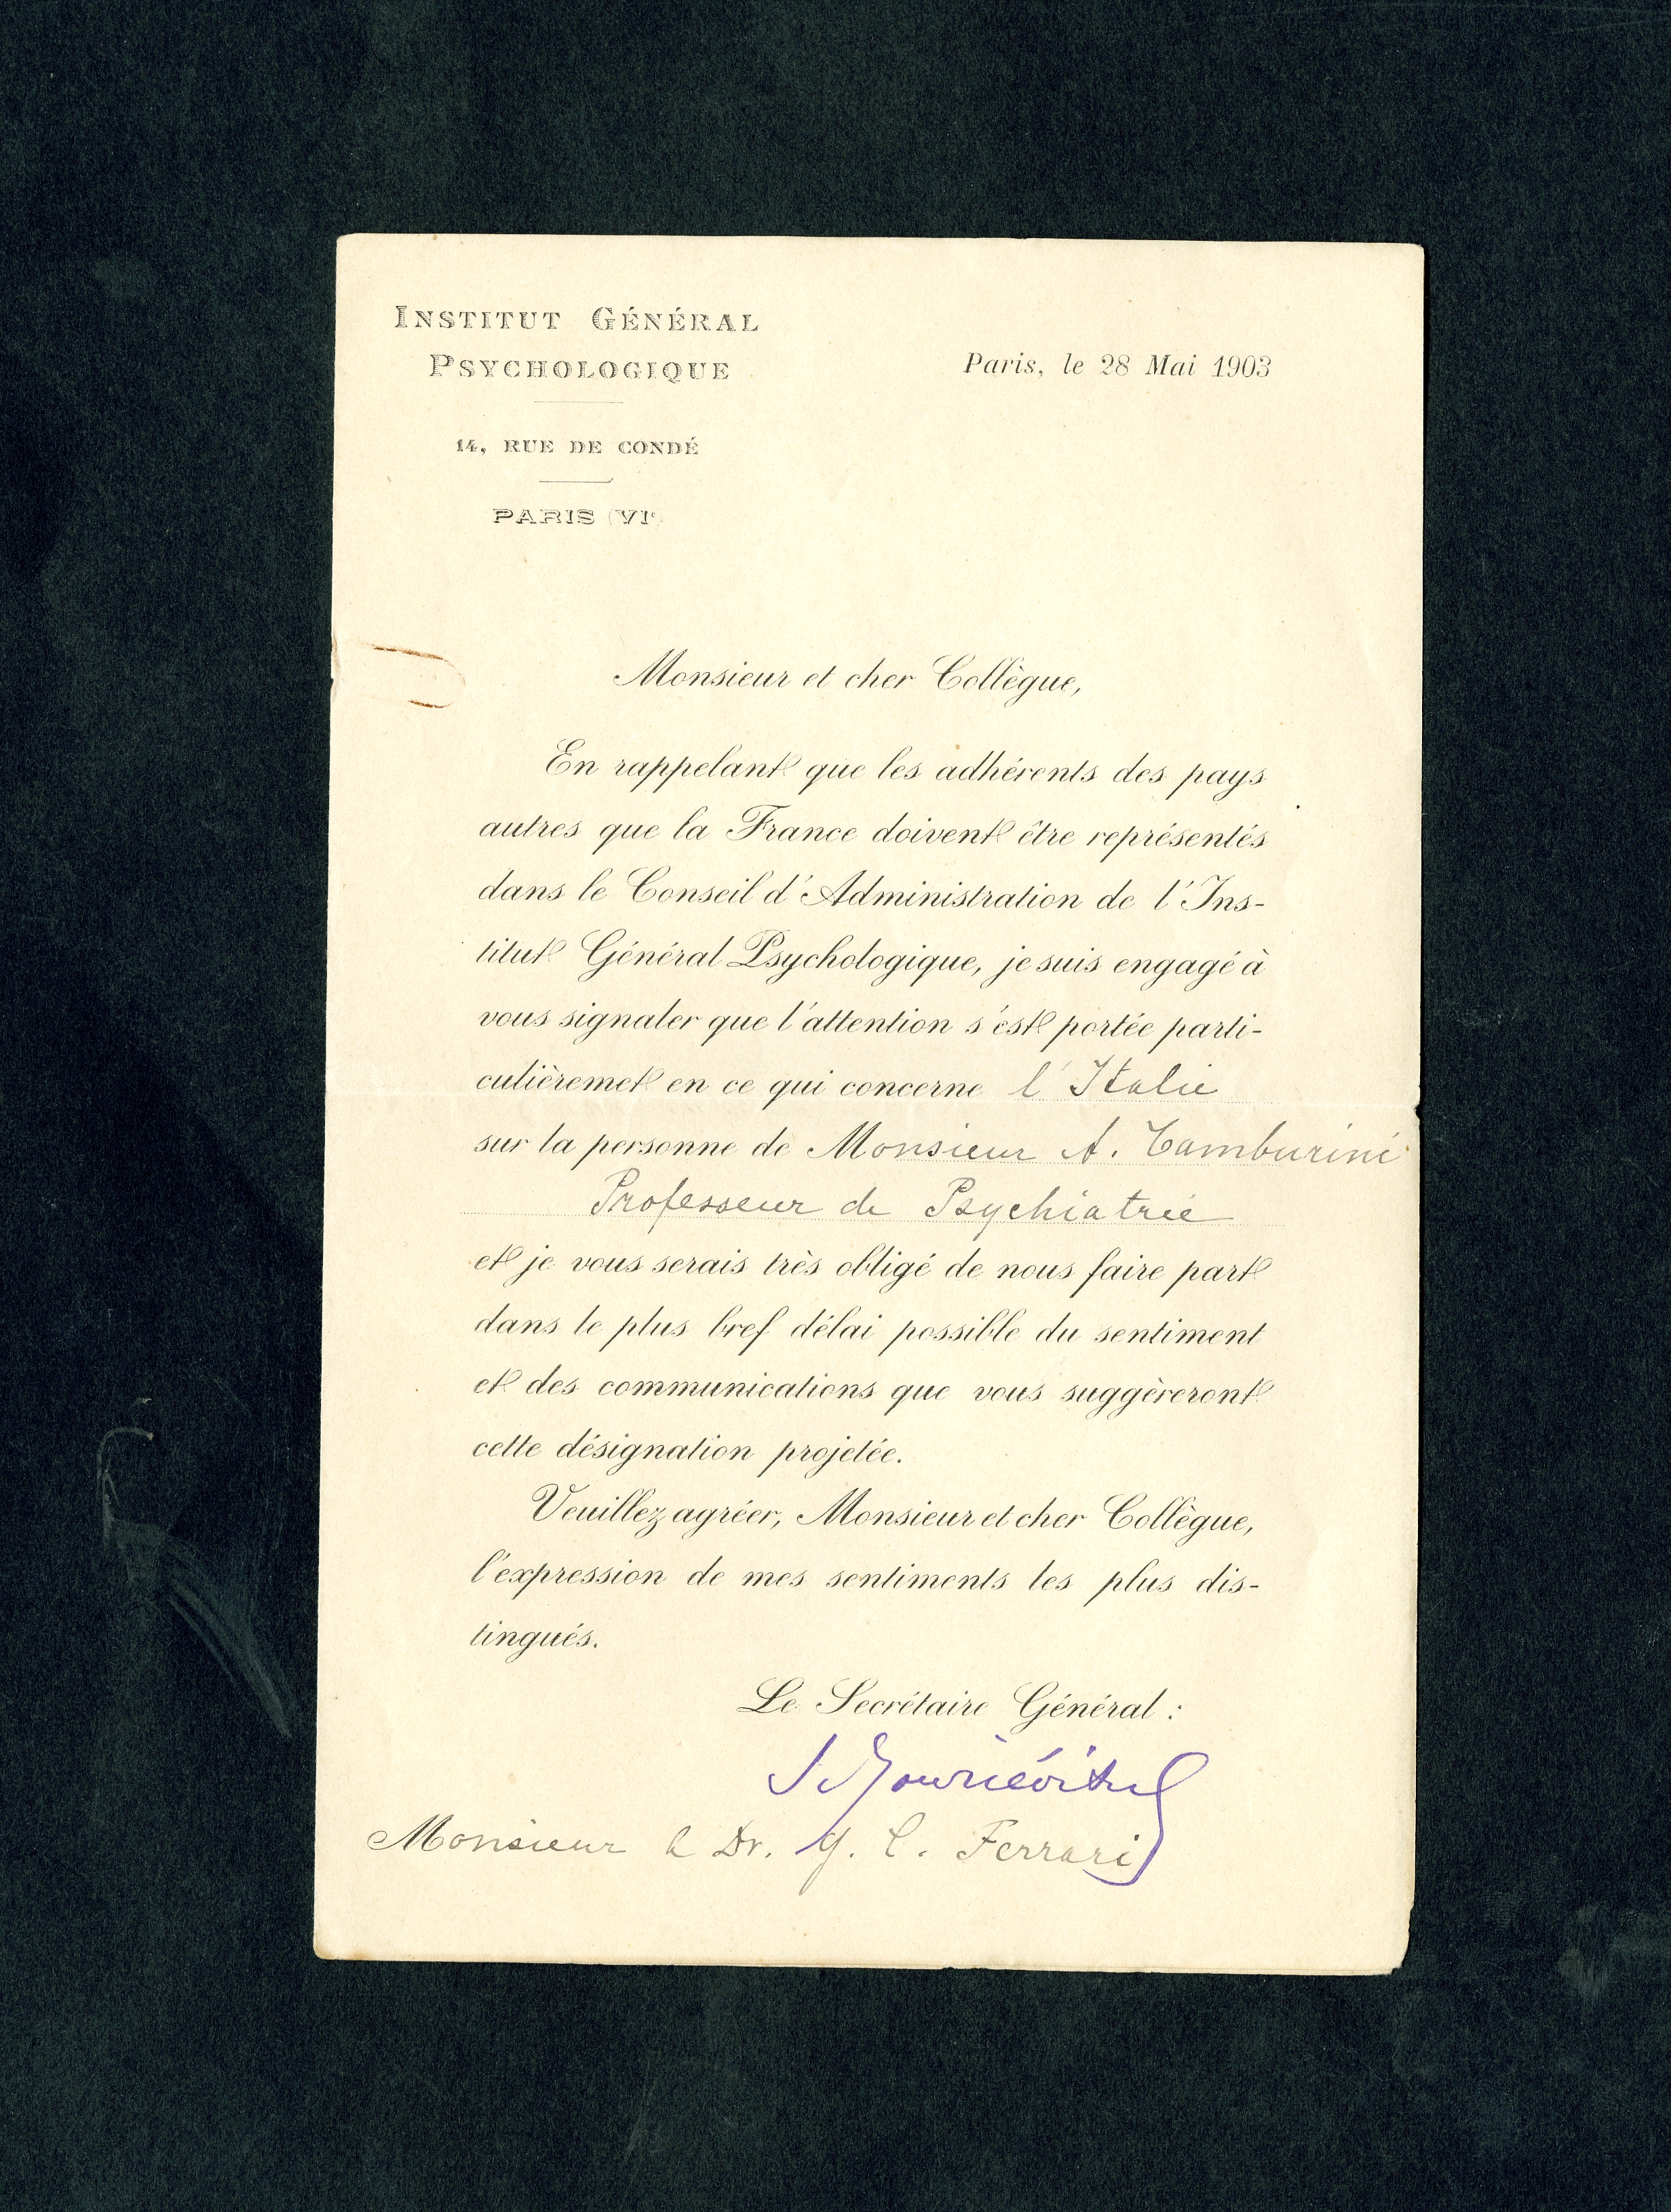 INSTITUT GÉNÉRAL
PSYCHOLOGIQUE
Paris, le 28 Mai 1903
14, RUE DE CONDÉ
PARIS (VIe)
Monsieur et cher Collègue,
En rappelant que les adhérents des pays
autres que la France doivent être représentés
dans le Conseil d'Administration de l'Ins-
titut Général Psychologique, je suis engagé à
vous signaler que l'attention s'est portée parti-
culièremet en ce qui concerne l'Italie
sur la personne de Monsieur A. Tamburini
Professeur de Psychiatrie
et je vous serais très obligé de nous faire part
dans le plus bref délai possible du sentiment
et des communications que vous suggèreront
cette désignation projetée.
Veuillez agréer, Monsieur et cher Collègue,
l'expression de mes sentiments les plus dis-
tingués.
Le Secrétaire Général :
S Youriévitch
Monsieur le Dr. G. C. Ferrari